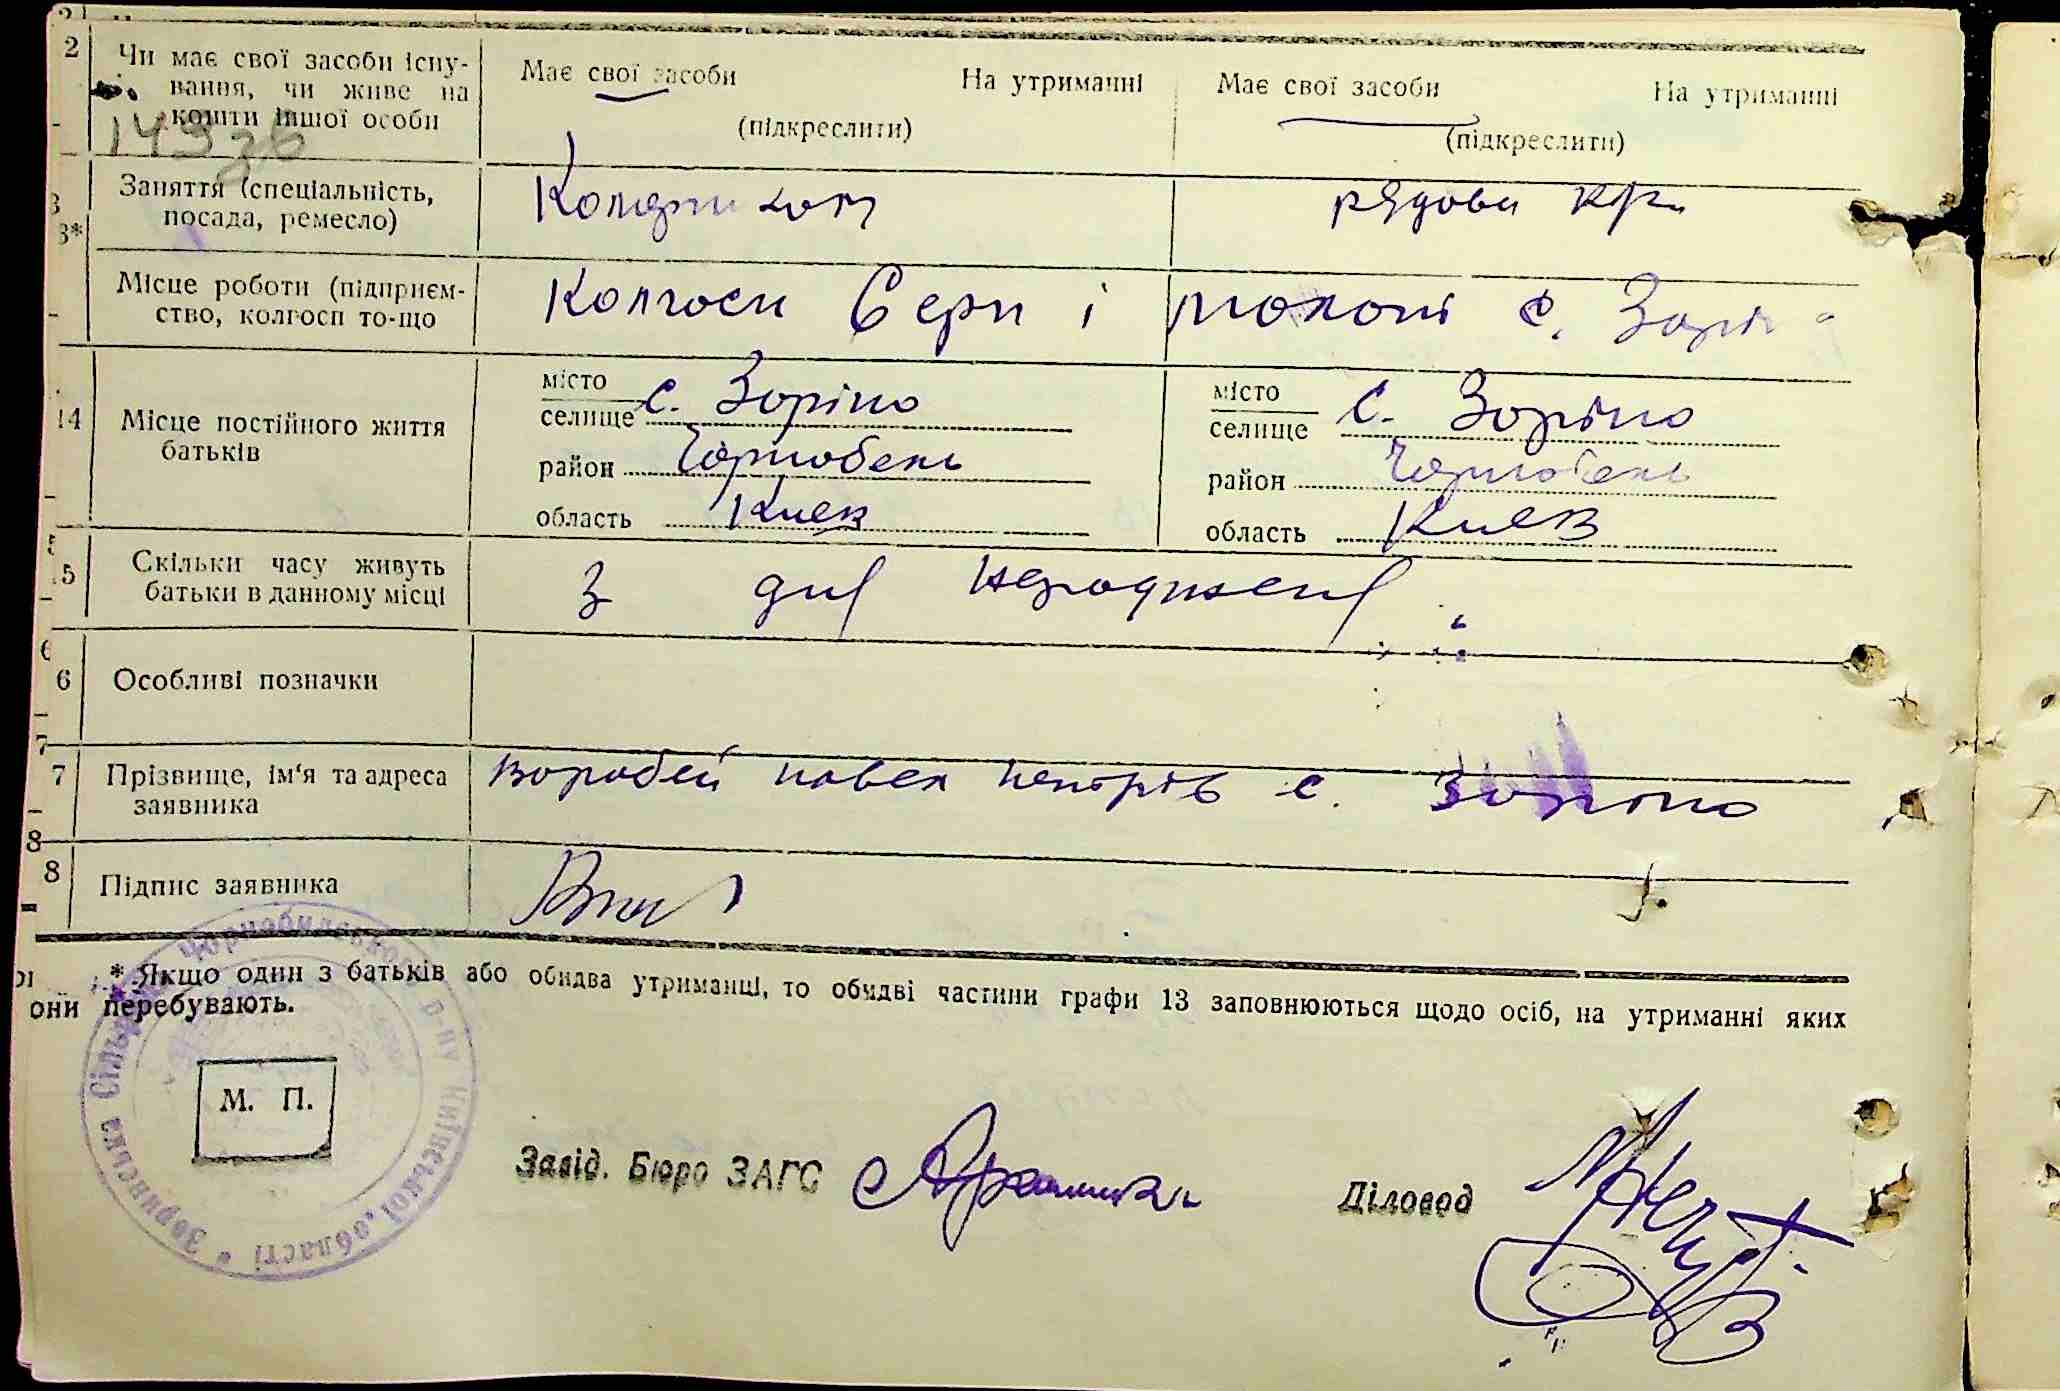 2 Чи має свої засоби існу-
вання, чи живе на
кошти іншої особи
Має свої засоби На утриманні
(підкреслити)
Має свої засоби На утриманні
(підкреслити)
Заняття (спеціальність,
посада, ремесло)
рядова
3*
Місце роботи (підприєм-
ство, колгосп то-що
Колгосп Серп і молот с. Зорін
14 Місце постійного життя
батьків
місто
селище с. Зоріно
район Чорнобель
область Киев
місто
селище с. Зоріно
район Чорнобель
область Киев
5 Скільки часу живуть
батьки в данному місці
З дня народження
6 Особливі позначки
7 Прізвище, ім'я та адреса
заявника
воробей павел петрів с. Зоріно
8 Підпис заявника
* Якщо один з батьків або обидва утриманці, то обидві частини графи 13 заповнюються щодо осіб, на утриманні яких
они перебувають.
М. П.
Завід. Бюро ЗАГС
Діловод
Зоринська Сільрада Чорнобильського р-ну Київської області